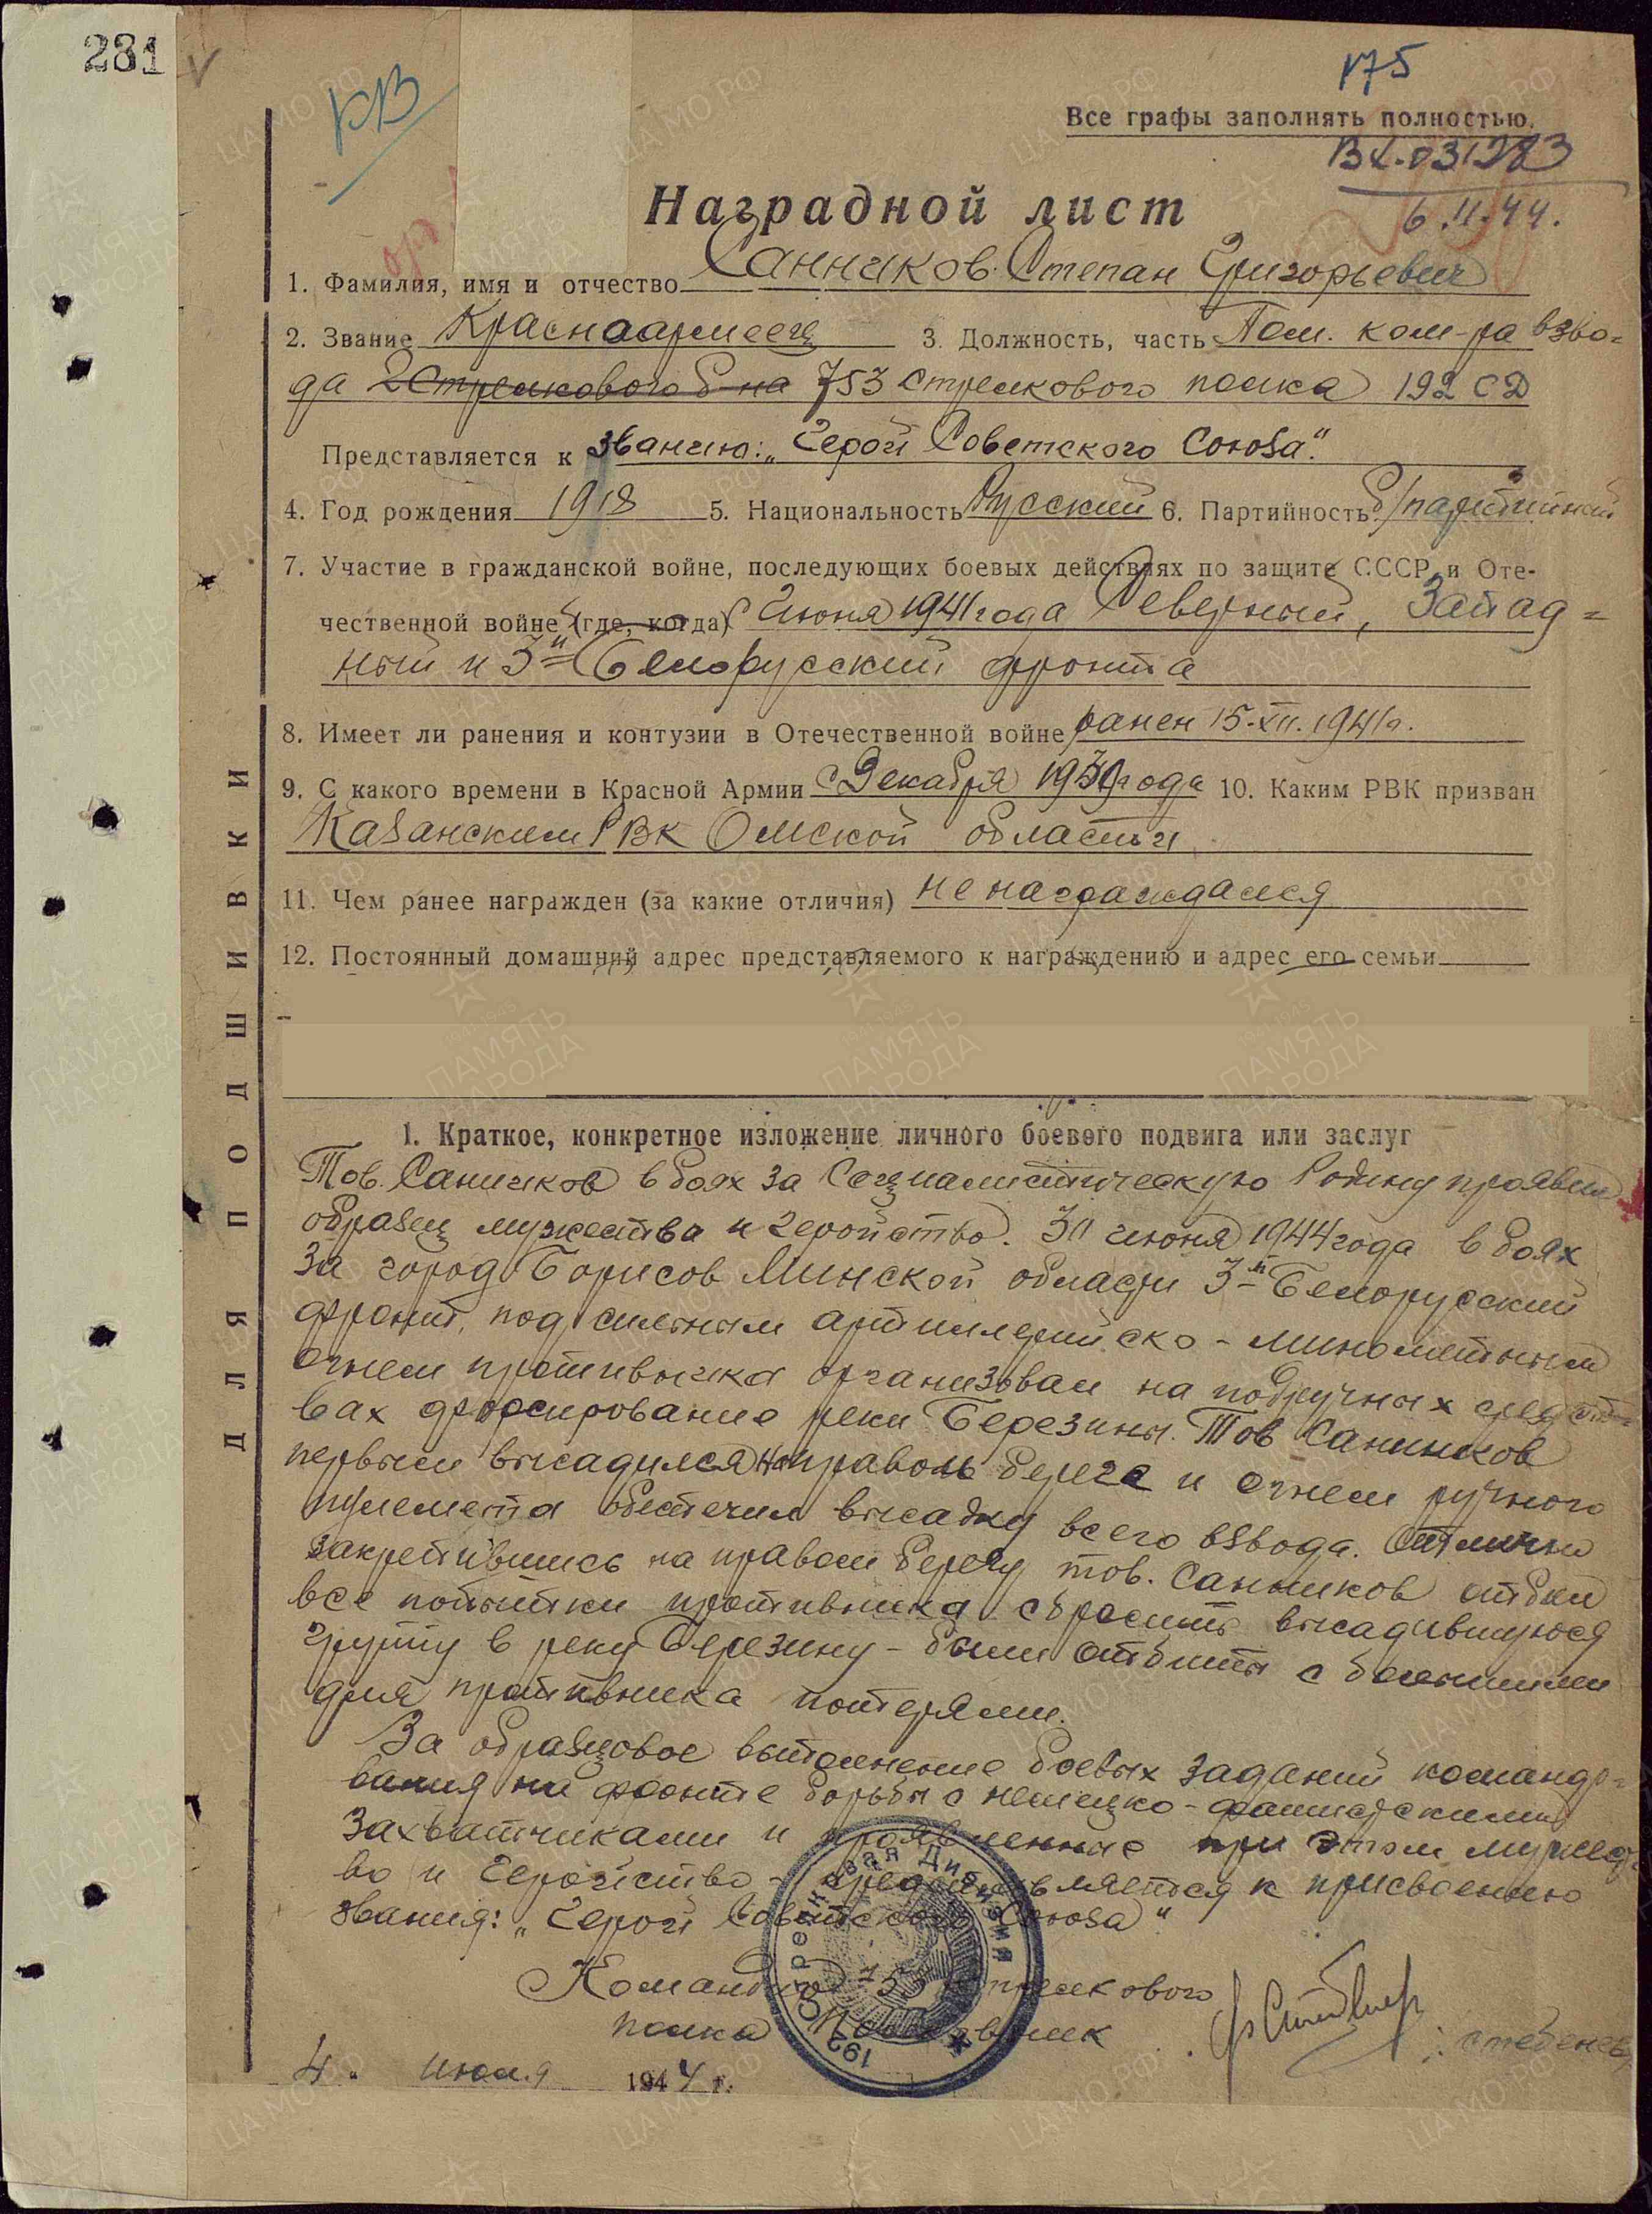 281
КВ
175
Все графы заполнять полностью.
Вх. 031283
6.11.44.
Наградной лист
1. Фамилия, имя и отчество Санников Степан Григорьевич
2. Звание Красноармеец 3. Должность, часть Пом. ком-ра взво-
да 2 Стрелкового б-на 753 стрелкового полка 192 СД
Представляется к званию: „Герой Советского Союза".
4. Год рождения 1918 5. Национальность Русский 6. Партийность б/партийный
7. Участие в гражданской войне, последующих боевых действиях по защите СССР и Оте-
чественной войне (где, когда) С Июня 1941 года Северный, Запад-
ный и 3й Белорусский фронта
8. Имеет ли ранения и контузии в Отечественной войне ранен 15.XII.1941г.
9. С какого времени в Красной Армии с Декабря 1939 года 10. Каким РВК призван
Казанским РВК Омской области
11. Чем ранее награжден (за какие отличия) не награждался
12. Постоянный домашний адрес представляемого к награждению и адрес его семьи
1. Краткое, конкретное изложение личного боевого подвига или заслуг
Тов. Санников в боях за Социалистическую Родину проявил
образец мужества и геройство. 30 июня 1944 года в боях
за город Борисов Минской области 3й Белорусский
фронт, под сильным артиллерийско-минометным
огнем противника организовал на подручных средст-
вах форсирование реки Березины. Тов Санников
первым высадился на правом берегу и огнем ручного
пулемета обеспечил высадку всего взвода. Отлично
закрепившись на правом берегу тов. Санников отбил
все попытки противника сбросить высадившуюся
группу в реку Березину - были отбиты с большими
для противника потерями.
За образцовое выполнение боевых заданий командо-
вания на фронте борьбы с немецко-фашистскими
захватчиками и проявленные при этом мужест-
во и Геройство - представляется к присвоению
звания: „Герой Советского Союза"
Командир 753 стрелкового
полка Подполковник
: Стебенев
4. июля 1944 г.
192 Стрелковая Дивизия
ДЛЯ ПОДШИВКИ
ЦА МО РФ
ПАМЯТЬ НАРОДА